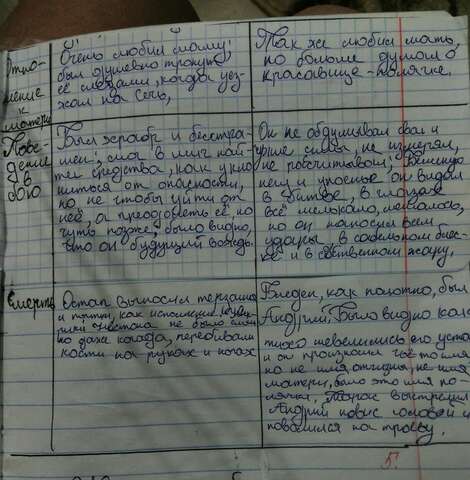 Отно-
шение
к
матери
Очень любил маму,
был душевно тронут
её слезами, когда уез-
жал на Сечь,
Так же любил мать,
но больше думал о
красавице - полячке.
Пове-
дение
в
бою
Был храбр и бесстра-
шен, смог в миг най-
ти средства, как укло-
ниться от опасности,
но не чтобы уйти от
неё, а преодолеть её, но
чуть позже было видно,
что он будущий вождь.
Он не обдумывал свои и
чужие силы, не измерял,
не рассчитывал; бешеную
негу и упоенье он видел
в битве, в глазах
всё мелькало, металось,
но он наносил всем
удары, в сабельном блес-
ке и в собственном жару.
Смерть
Остап выносил терзания
и пытки, как исполин. Ни
крика ни стона не было слыш-
но даже когда, перебивали
кости на руках и ногах
Бледен, как полотно, был
Андрий. Было видно как
тихо шевелились его уста
и он произносил чьё то имя
но не имя отчизны не имя
матери, было это имя по-
лячки. Тарас выстрелил
Андрий повис головой и
повалился на траву.
5